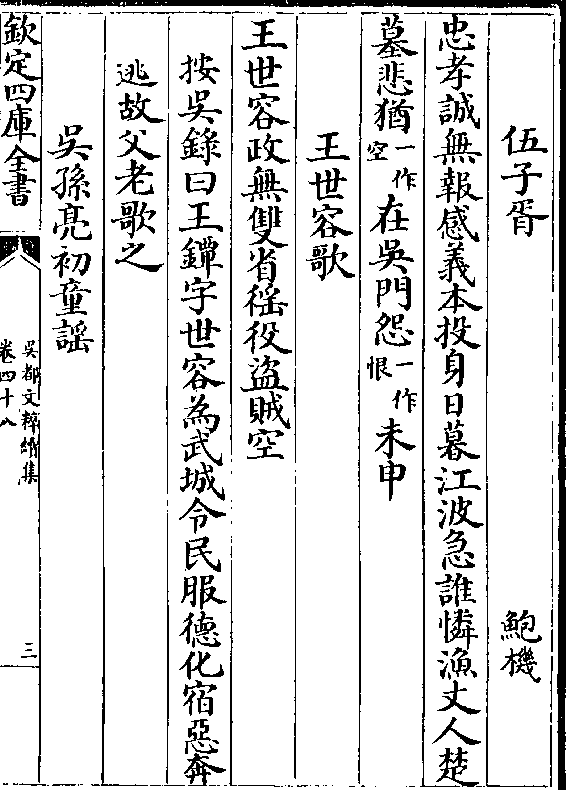 伍子胥　鮑機
忠孝誠無報感義本投身日暮江波急誰憐漁丈人楚
墓悲猶一作空在吳門怨一作恨未申
王世容歌
王世容政無雙省徭役盜賊空
按吳錄曰王鐔字世容為武城令民服德化宿惡奔
逃故父老歌之
吳孫亮初童謠
欽定四庫全書
吳都文粹續集
卷四十八
三